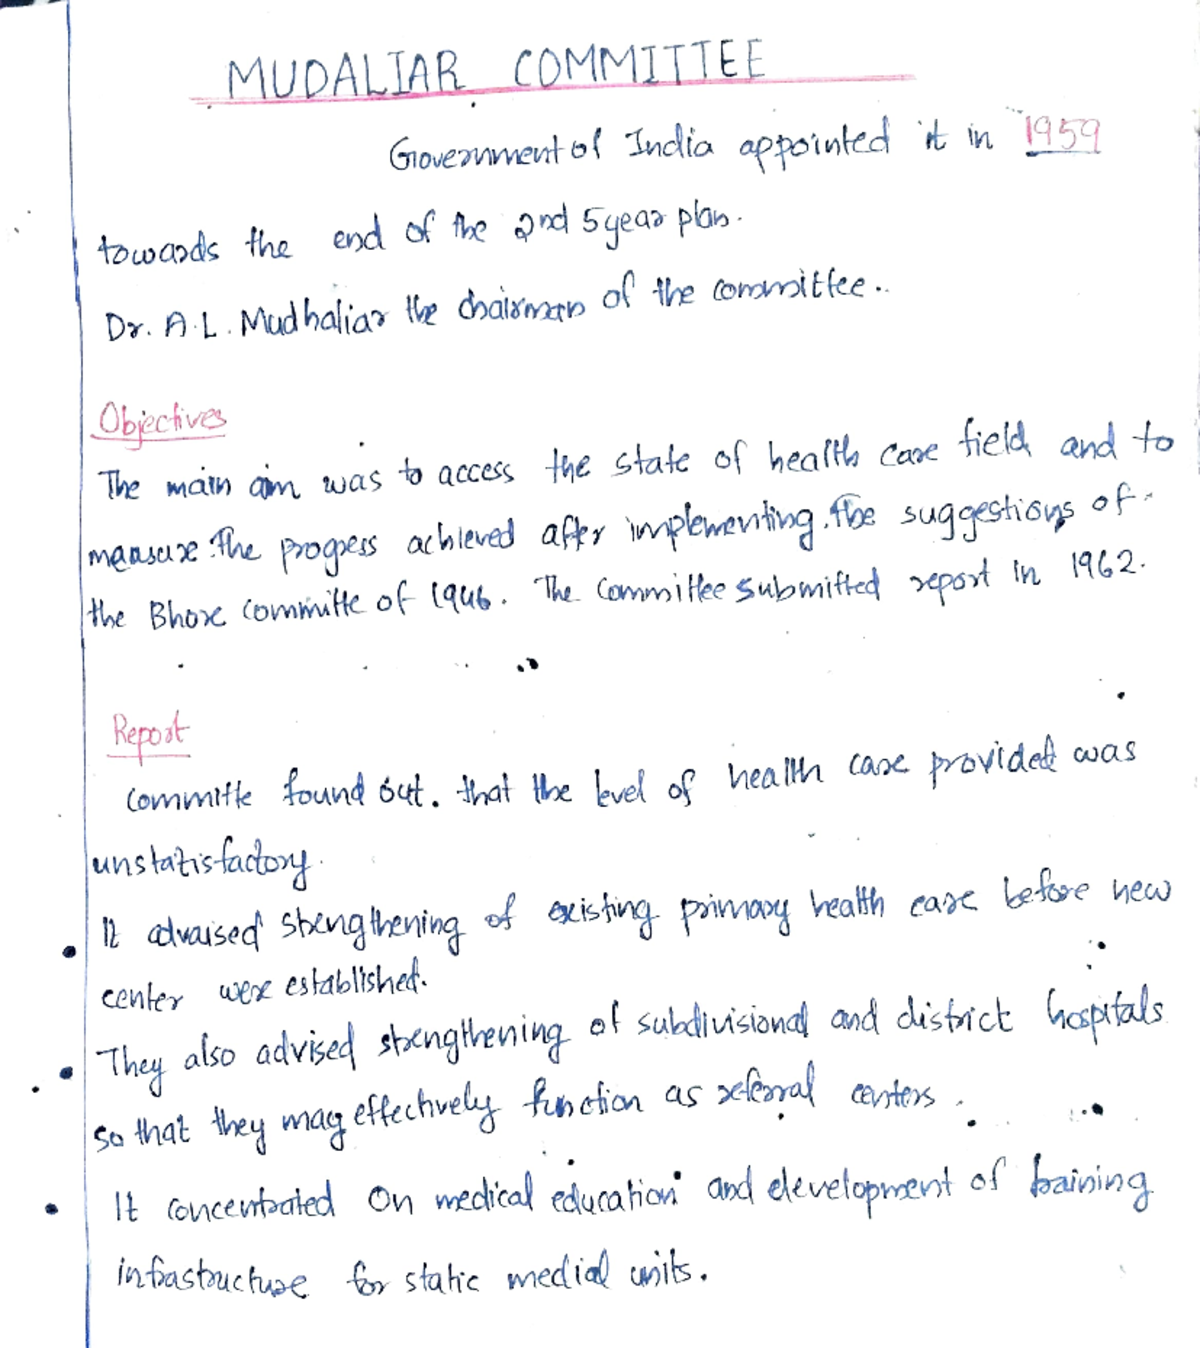 MUDALIAR COMMITTEE
Government of India appointed it in 1959
towards the end of the 2nd 5 year plan.
Dr. A.L. Mudhaliar the chairman of the committee..
Objectives
The main aim was to access the state of health care field and to
meansure the progress achieved after implementing the suggestions of
the Bhore committe of 1946. The Committee submitted report in 1962.
Report
committe found out. that the level of health care provided was
unstatisfactory.
• It advaised strengthening of existing primary health care before new
center were established.
• They also advised strengthening of subdivisional and district hospitals
so that they mag effectively function as referral centers.
• It concentrated on medical education and development of training
infrastructure for static medial units.